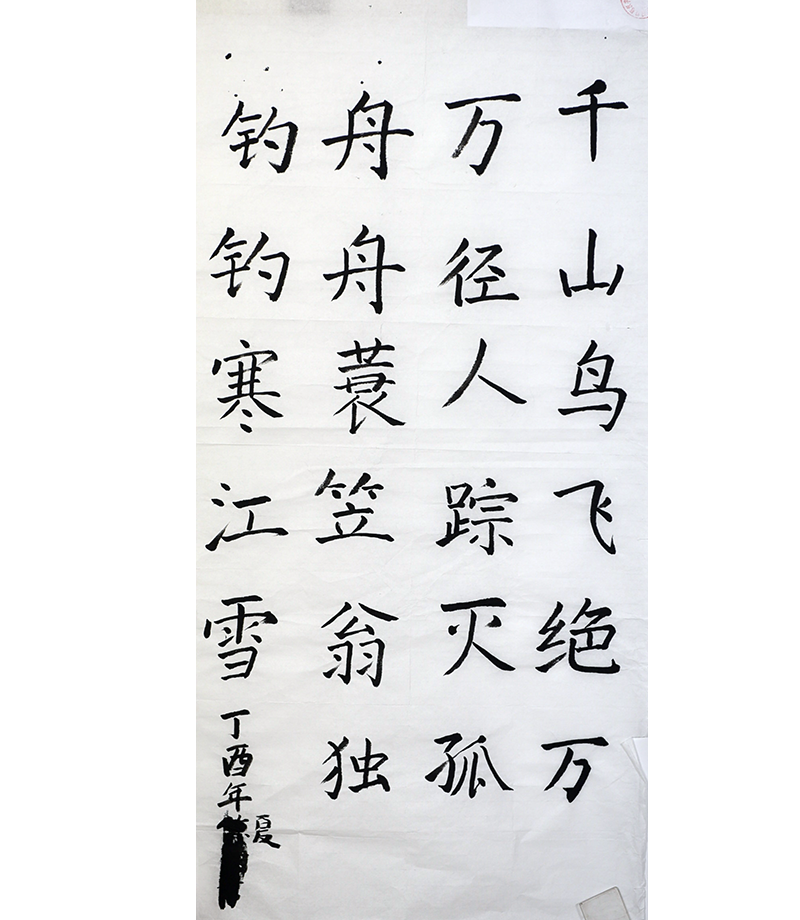 千山鸟飞绝万
万径人踪灭孤
舟舟蓑笠翁独
钓钓寒江雪
丁酉年
夏